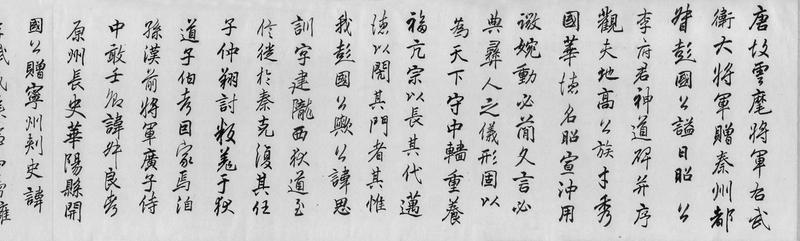 唐故雲麾將軍右武
衛大將軍贈秦州都
督彭國公謚曰昭公
李府君神道碑并序
觀夫地高公族才秀
國華德名昭宣沖用
微婉動必簡久言必
典彝人之儀形固以
為天下守中轄重養
福亢宗以長其代邁
德以閱其門者其惟
我彭國公歟公諱思
訓字建隴西狄道至
信徙於秦克復其任
子仲翔討叛羌于狄
道子伯考因家焉洎
孫漢前將軍廣子侍
中敢壬公諱昇良考
原州長史華陽縣開
國公贈寧州刺史諱